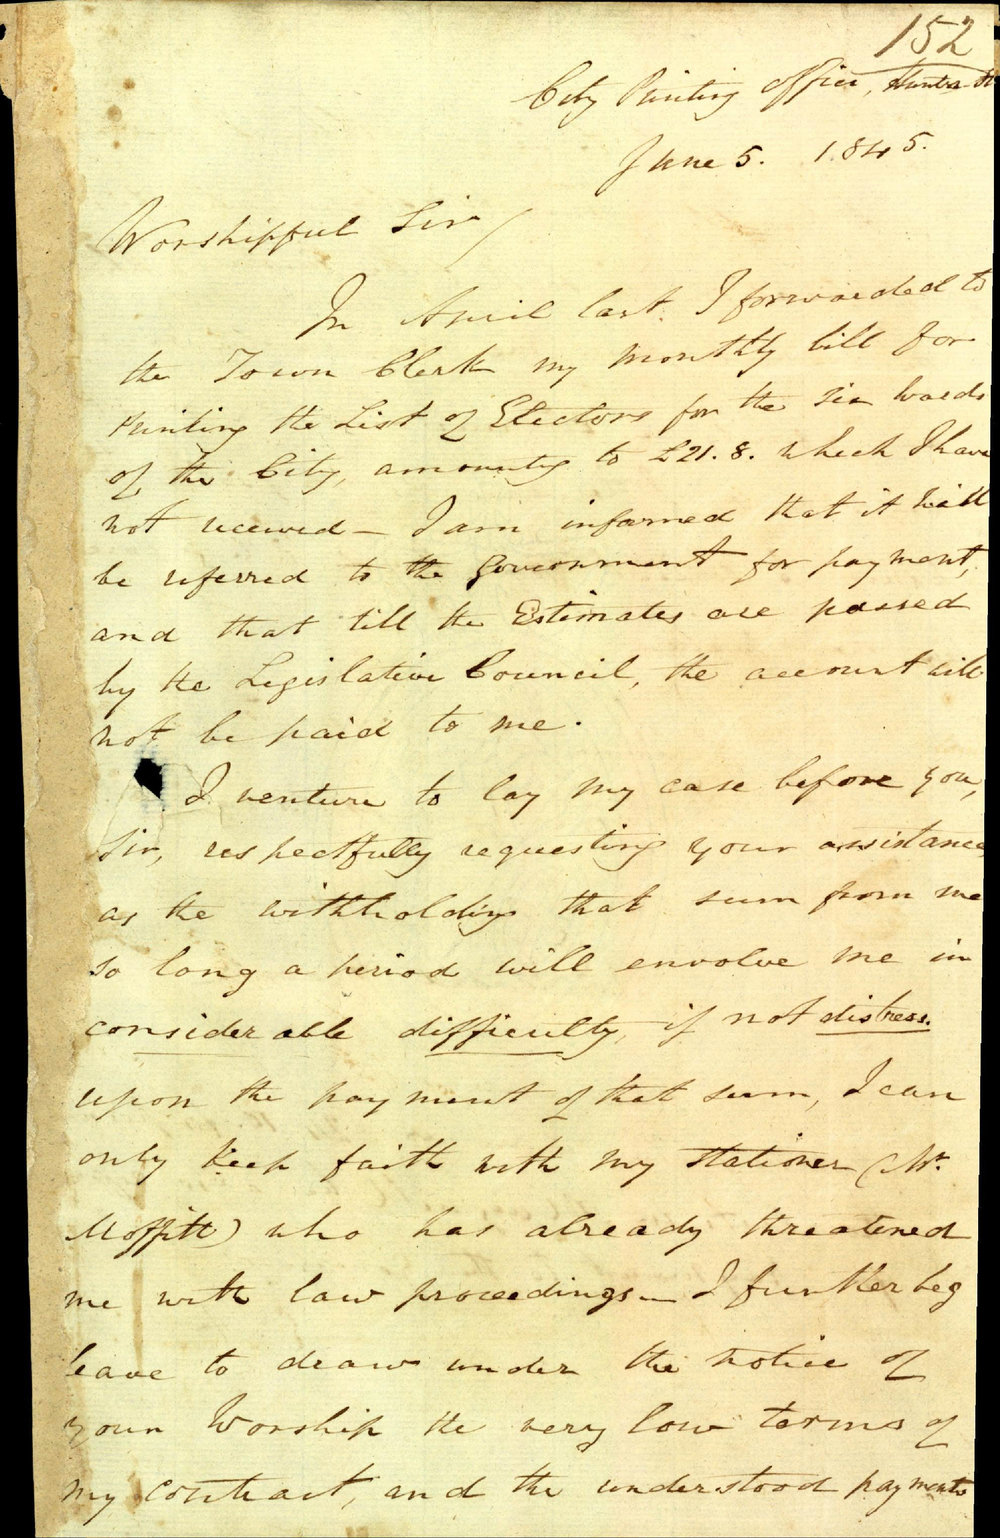 152
City Printing Office, Hunter St
June 5. 1845.
Worshipful Sir /
In April last I forwarded to
the Town Clerk my monthly bill for
Printing the List of Electors for the six Wards
of the City, amounting to £21. 8. which I have
not received — I am informed that it will
be referred to the Government for payment,
and that till the Estimates are passed
by the Legislative Council, the account will
not be paid to me.
I venture to lay my case before you,
Sir, respectfully requesting your assistance,
as the withholding that sum from me
so long a period will envolve me in
considerable difficulty, if not distress.
upon the payment of that sum, I can
only keep faith with my stationer (Mr.
Moffitt) who has already threatened
me with law proceedings — I further beg
leave to draw under the notice of
your Worship the very low terms of
my contract, and the understood payments